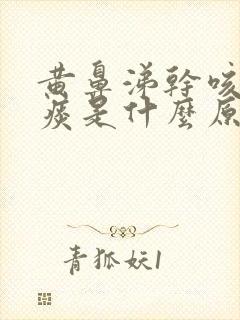 黄鼻涕幹咳
痰是什麼原
青狐妖1